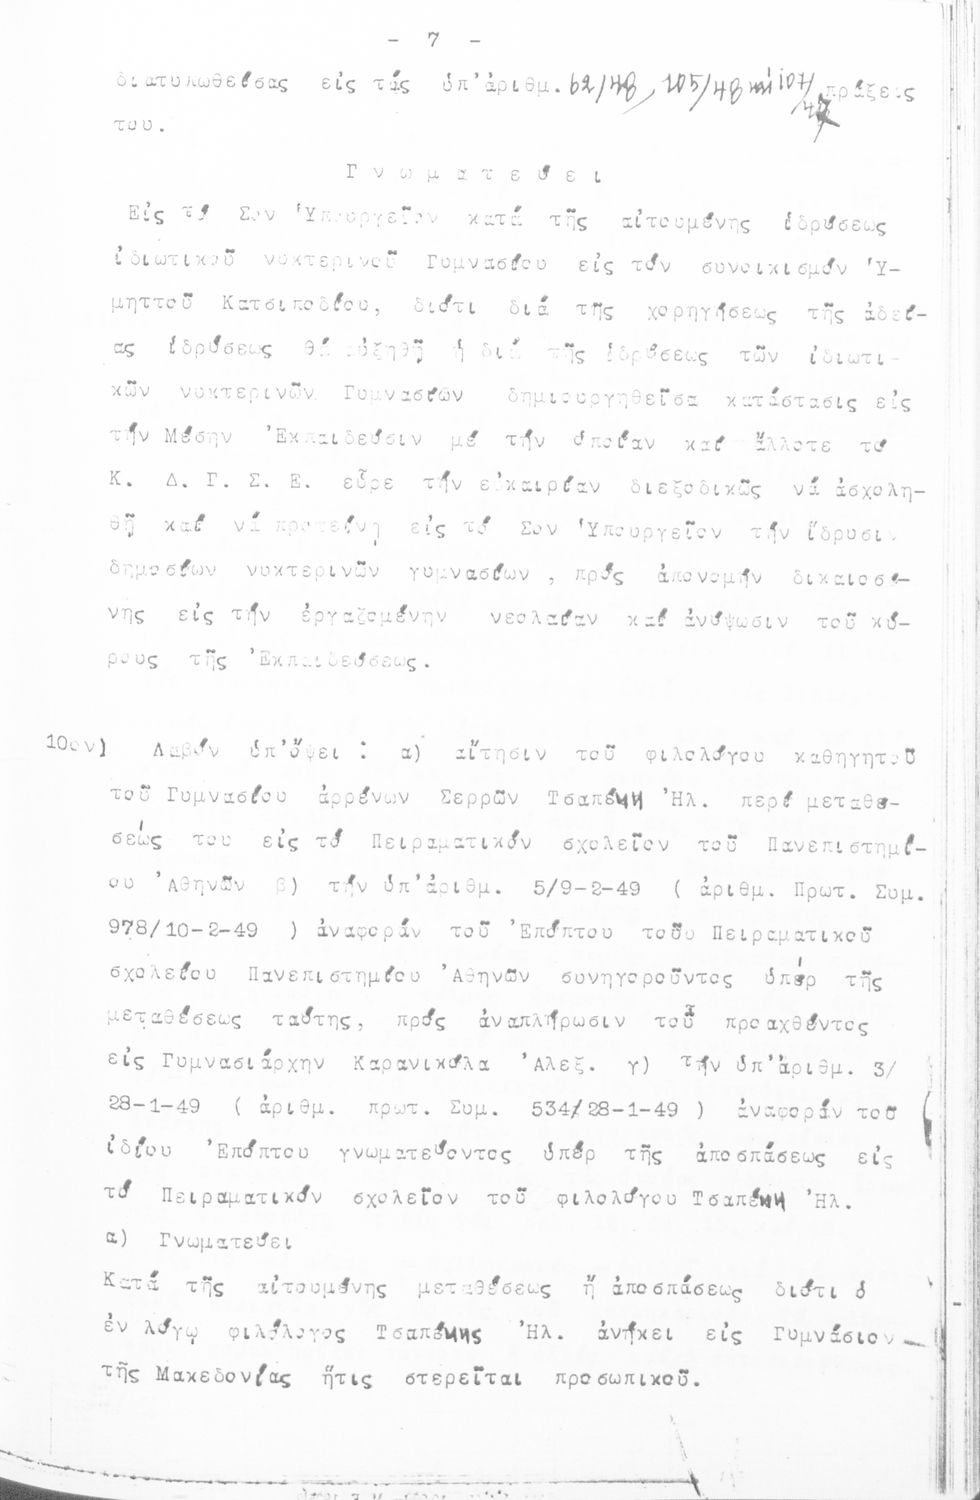 - 7 -
διατυπωθείσας εἰς τάς ὑπ'ἀριθμ. 62/48, 105/48 καί 107/ πράξεις
του.
Γ ν ω μ α τ ε ύ ε ι
Εἰς τό Σον Ὑπουργεῖον κατά τῆς αἰτουμένης ἱδρύσεως
ἰδιωτικοῦ νυκτερινοῦ Γυμνασίου εἰς τόν συνοικισμόν Ὑ-
μηττοῦ Κατσιποδίου, διότι διά τῆς χορηγήσεως τῆς ἀδεί-
ας ἱδρύσεως θά αὐξηθῇ ἡ διά τῆς ἱδρύσεως τῶν ἰδιωτι-
κῶν νυκτερινῶν Γυμνασίων δημιουργηθεῖσα κατάστασις εἰς
τήν Μέσην Ἐκπαίδευσιν μέ τήν ὁποίαν καί ἄλλοτε τό
Κ. Δ. Γ. Σ. Ε. εὗρε τήν εὐκαιρίαν διεξοδικῶς νά ἀσχολη-
θῇ καί νά προτείνῃ εἰς τό Σον Ὑπουργεῖον τήν ἵδρυσιν
δημοσίων νυκτερινῶν γυμνασίων , πρός ἀπονομήν δικαιοσύ-
νης εἰς τήν ἐργαζομένην νεολαίαν καί ἀνύψωσιν τοῦ κύ-
ρους τῆς Ἐκπαιδεύσεως.
10ον) Λαβόν ὑπ'ὄψει : α) αἴτησιν τοῦ φιλολόγου καθηγητοῦ
τοῦ Γυμνασίου ἀρρένων Σερρῶν Τσαπέκη Ἠλ. περί μεταθέ-
σεώς του εἰς τό Πειραματικόν σχολεῖον τοῦ Πανεπιστημί-
ου Ἀθηνῶν β) τήν ὑπ'ἀριθμ. 5/9-2-49 ( ἀριθμ. Πρωτ. Συμ.
978/10-2-49 ) ἀναφοράν τοῦ Ἐπόπτου τοῦυ Πειραματικοῦ
σχολείου Πανεπιστημίου Ἀθηνῶν συνηγοροῦντος ὑπέρ τῆς
μεταθέσεως ταύτης, πρός ἀναπλήρωσιν τοῦ προαχθέντος
εἰς Γυμνασιάρχην Καρανικόλα Ἀλεξ. γ) τήν ὑπ'ἀριθμ. 3/
28-1-49 ( ἀριθμ. πρωτ. Συμ. 534/28-1-49 ) ἀναφοράν τοῦ
ἰδίου Ἐπόπτου γνωματεύοντος ὑπέρ τῆς ἀποσπάσεως εἰς
τό Πειραματικόν σχολεῖον τοῦ φιλολόγου Τσαπέκη Ἠλ.
α) Γνωματεύει
Κατά τῆς αἰτουμένης μεταθέσεως ἤ ἀποσπάσεως διότι ὁ
ἐν λόγῳ φιλόλογος Τσαπέκης Ἠλ. ἀνήκει εἰς Γυμνάσιον
τῆς Μακεδονίας ἥτις στερεῖται προσωπικοῦ.